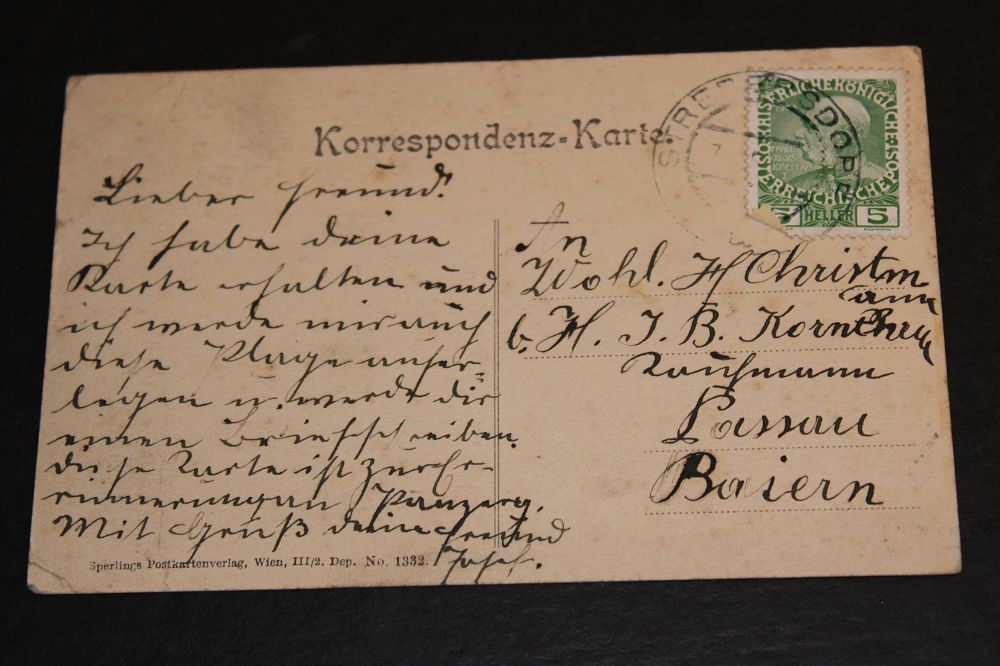 Korrespondenz-Karte.
Lieber Freund!
Ich habe deine
Karte erhalten und
ich werde mir auch
diese Plage aufer-
legen u. werde dir
einen Brief schreiben.
diese Karte ist zur Er-
innerung an
Mit Gruß dein Freund
Josef.
Sperlings Postkartenverlag, Wien, III/2. Dep. No. 1332.
An
Wohl. H Christm
ann
b. H. J. B.
Kaufmann
Passau
Baiern
KAISERLICHE KÖNIGLICHE
ÖSTERREICHISCHE POST
5 HELLER 5